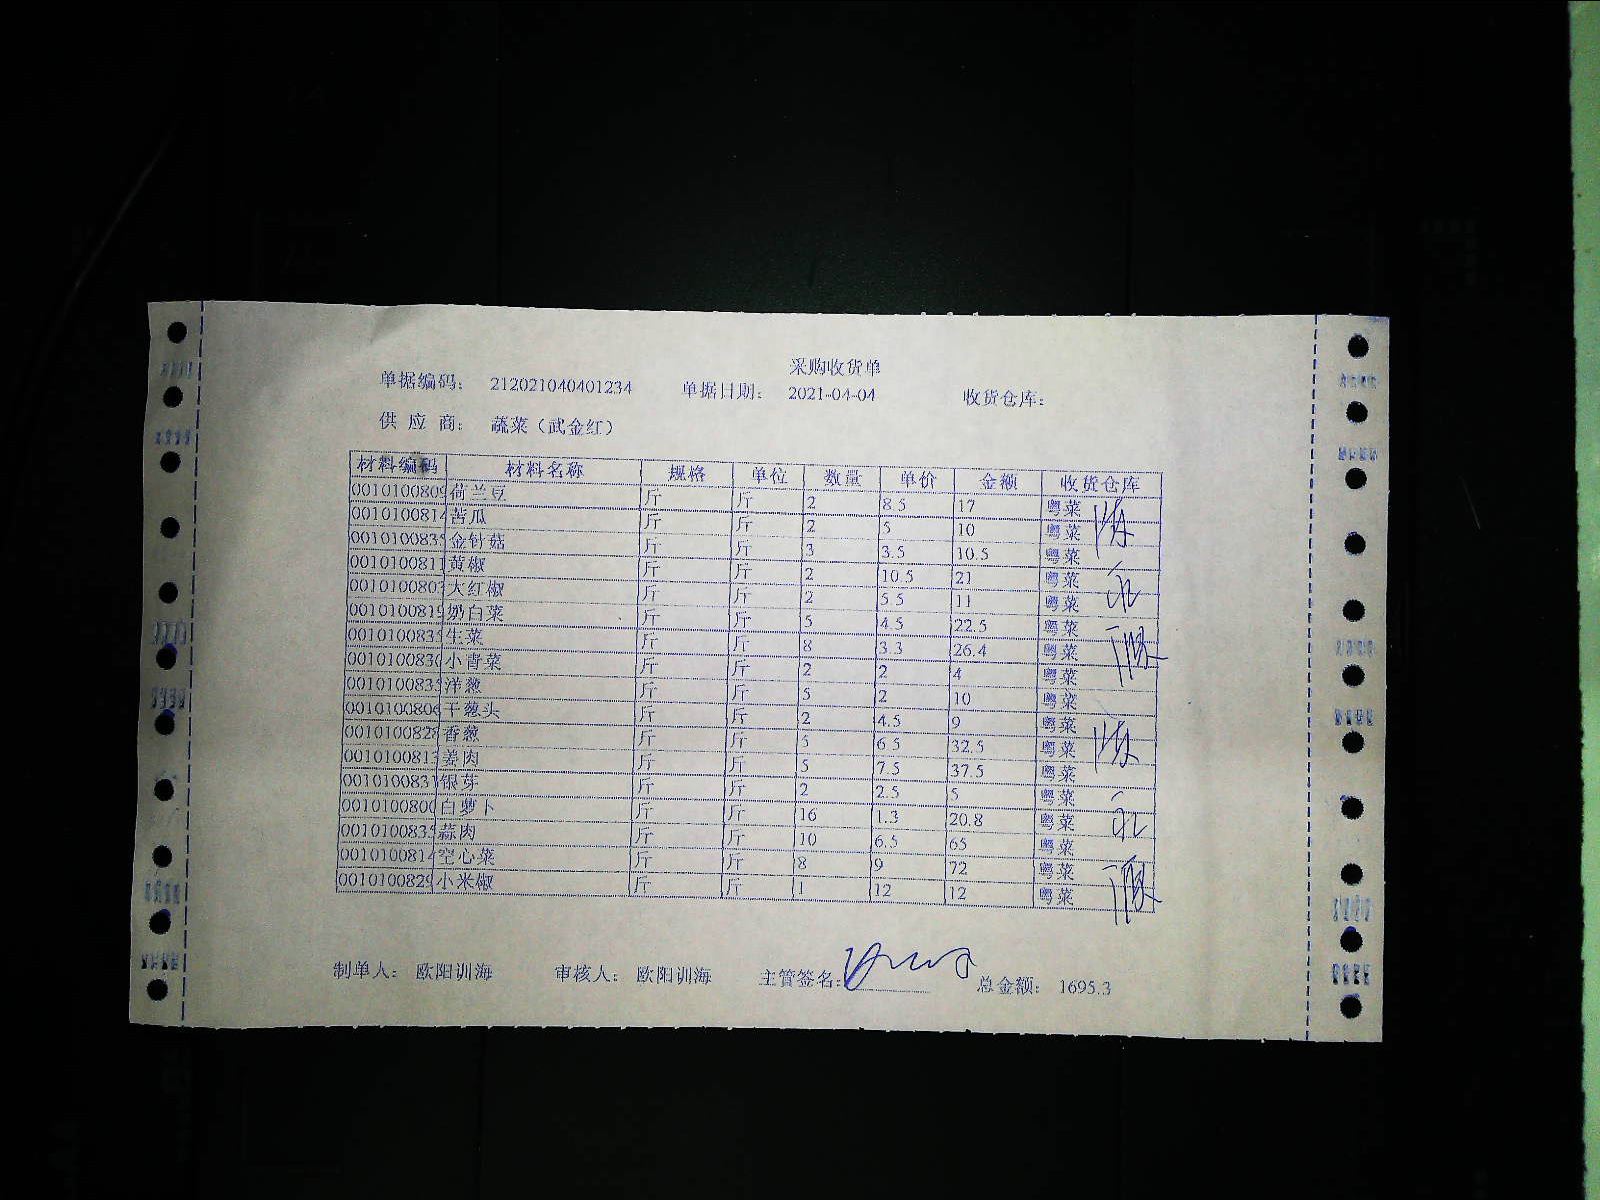 采购收货单
单据编码： 212021040401234 单据日期： 2021-04-04 收货仓库：
供 应 商： 蔬菜（武金红）
材料编码 材料名称 规格 单位 数量 单价 金额 收货仓库
0010100809 荷兰豆 斤 斤 2 8.5 17 粤菜
0010100814 苦瓜 斤 斤 2 5 10 粤菜
001010083 金针菇 斤 斤 3 3.5 10.5 粤菜
0010100811 黄椒 斤 斤 2 10.5 21 粤菜
001010080 大红椒 斤 斤 2 5.5 11 粤菜
0010100819 奶白菜 斤 斤 5 4.5 22.5 粤菜
001010083 生菜 斤 斤 8 3.3 26.4 粤菜
001010083 小青菜 斤 斤 2 2 4 粤菜
001010083 洋葱 斤 斤 5 2 10 粤菜
001010080 干葱头 斤 斤 2 4.5 9 粤菜
0010100828 香葱 斤 斤 5 6.5 32.5 粤菜
001010081 姜肉 斤 斤 5 7.5 37.5 粤菜
001010083 银芽 斤 斤 2 2.5 5 粤菜
001010080 白萝卜 斤 斤 16 1.3 20.8 粤菜
001010083 蒜肉 斤 斤 10 6.5 65 粤菜
001010081 空心菜 斤 斤 8 9 72 粤菜
001010082 小米椒 斤 斤 1 12 12 粤菜
制单人： 欧阳训海 审核人： 欧阳训海 主管签名： 总金额： 1695.3